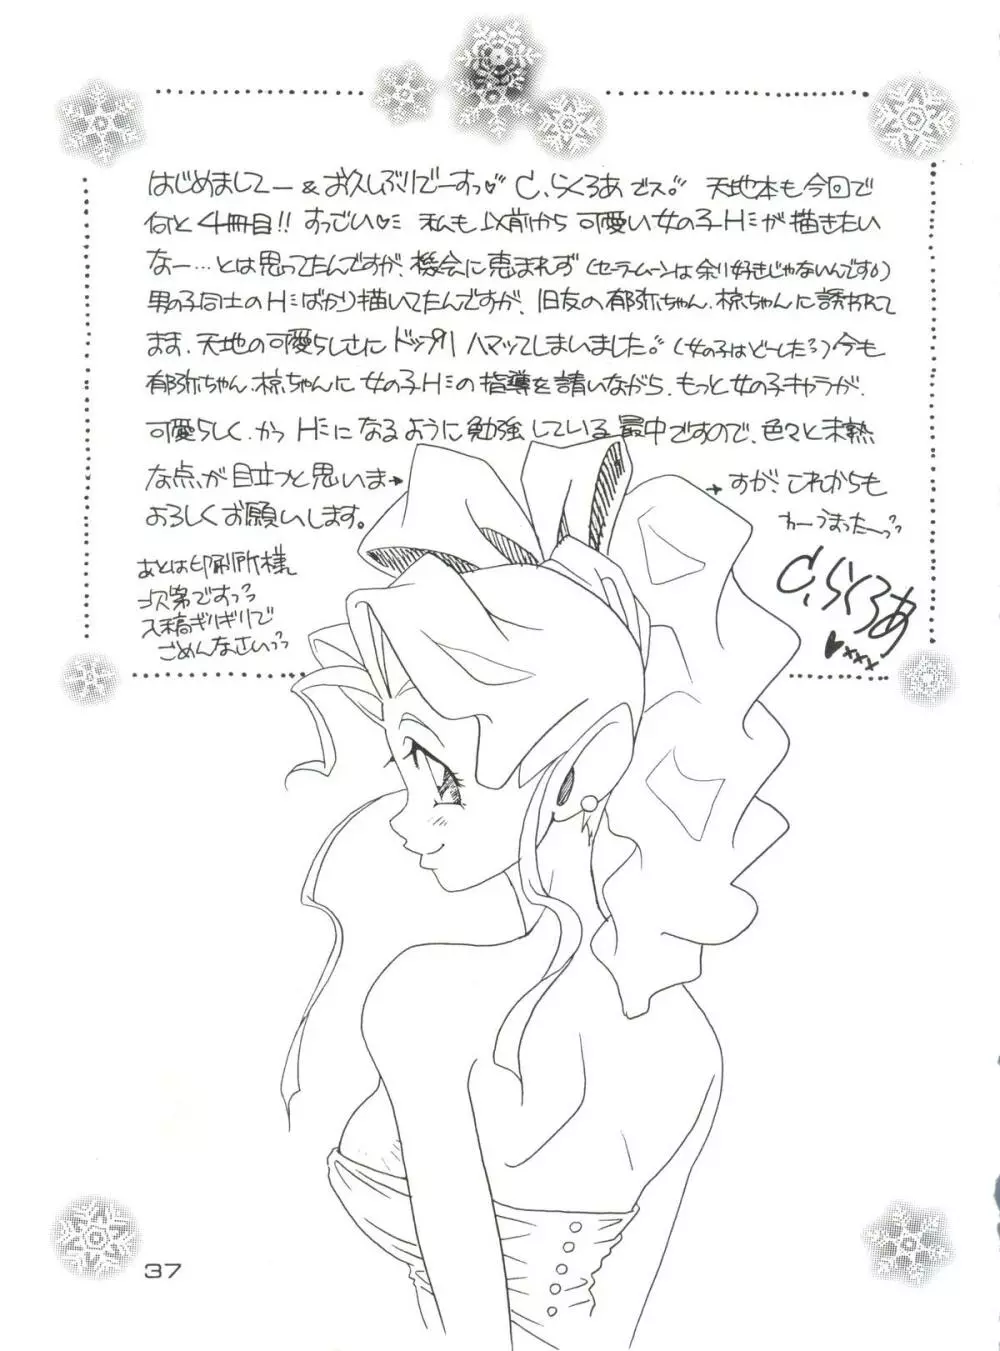 はじめましてー&お久しぶりでーすっ♡ C、らくろあでス。 天地本も今回で
何と4冊目!! すっごい♡ 私も以前から可愛い女の子Hミが描きたい
なー…とは思ってたんですが、機会に恵まれず(セーラームーンは余り好きじゃないんです。)
男の子同士のHミばかり描いてたんですが、旧友の郁弥ちゃん、椋ちゃんに誘われて
ます、天地の可愛らしさにドップリハマッてしまいました。(女の子はどーした?)今も
郁弥ちゃん、椋ちゃんに女の子Hミの指導を請いながら、もっと女の子キャラが、
可愛らしく、かつHミになるように勉強している最中ですので、色々と未熟
な点が目立つと思いま→
→すが、これからも
よろしくお願いします。
わーうまったーっ
あとは印刷所様
次第ですっ
入稿ギリギリで
ごめんなさいっ
C、らくろあ
♥xxx
37